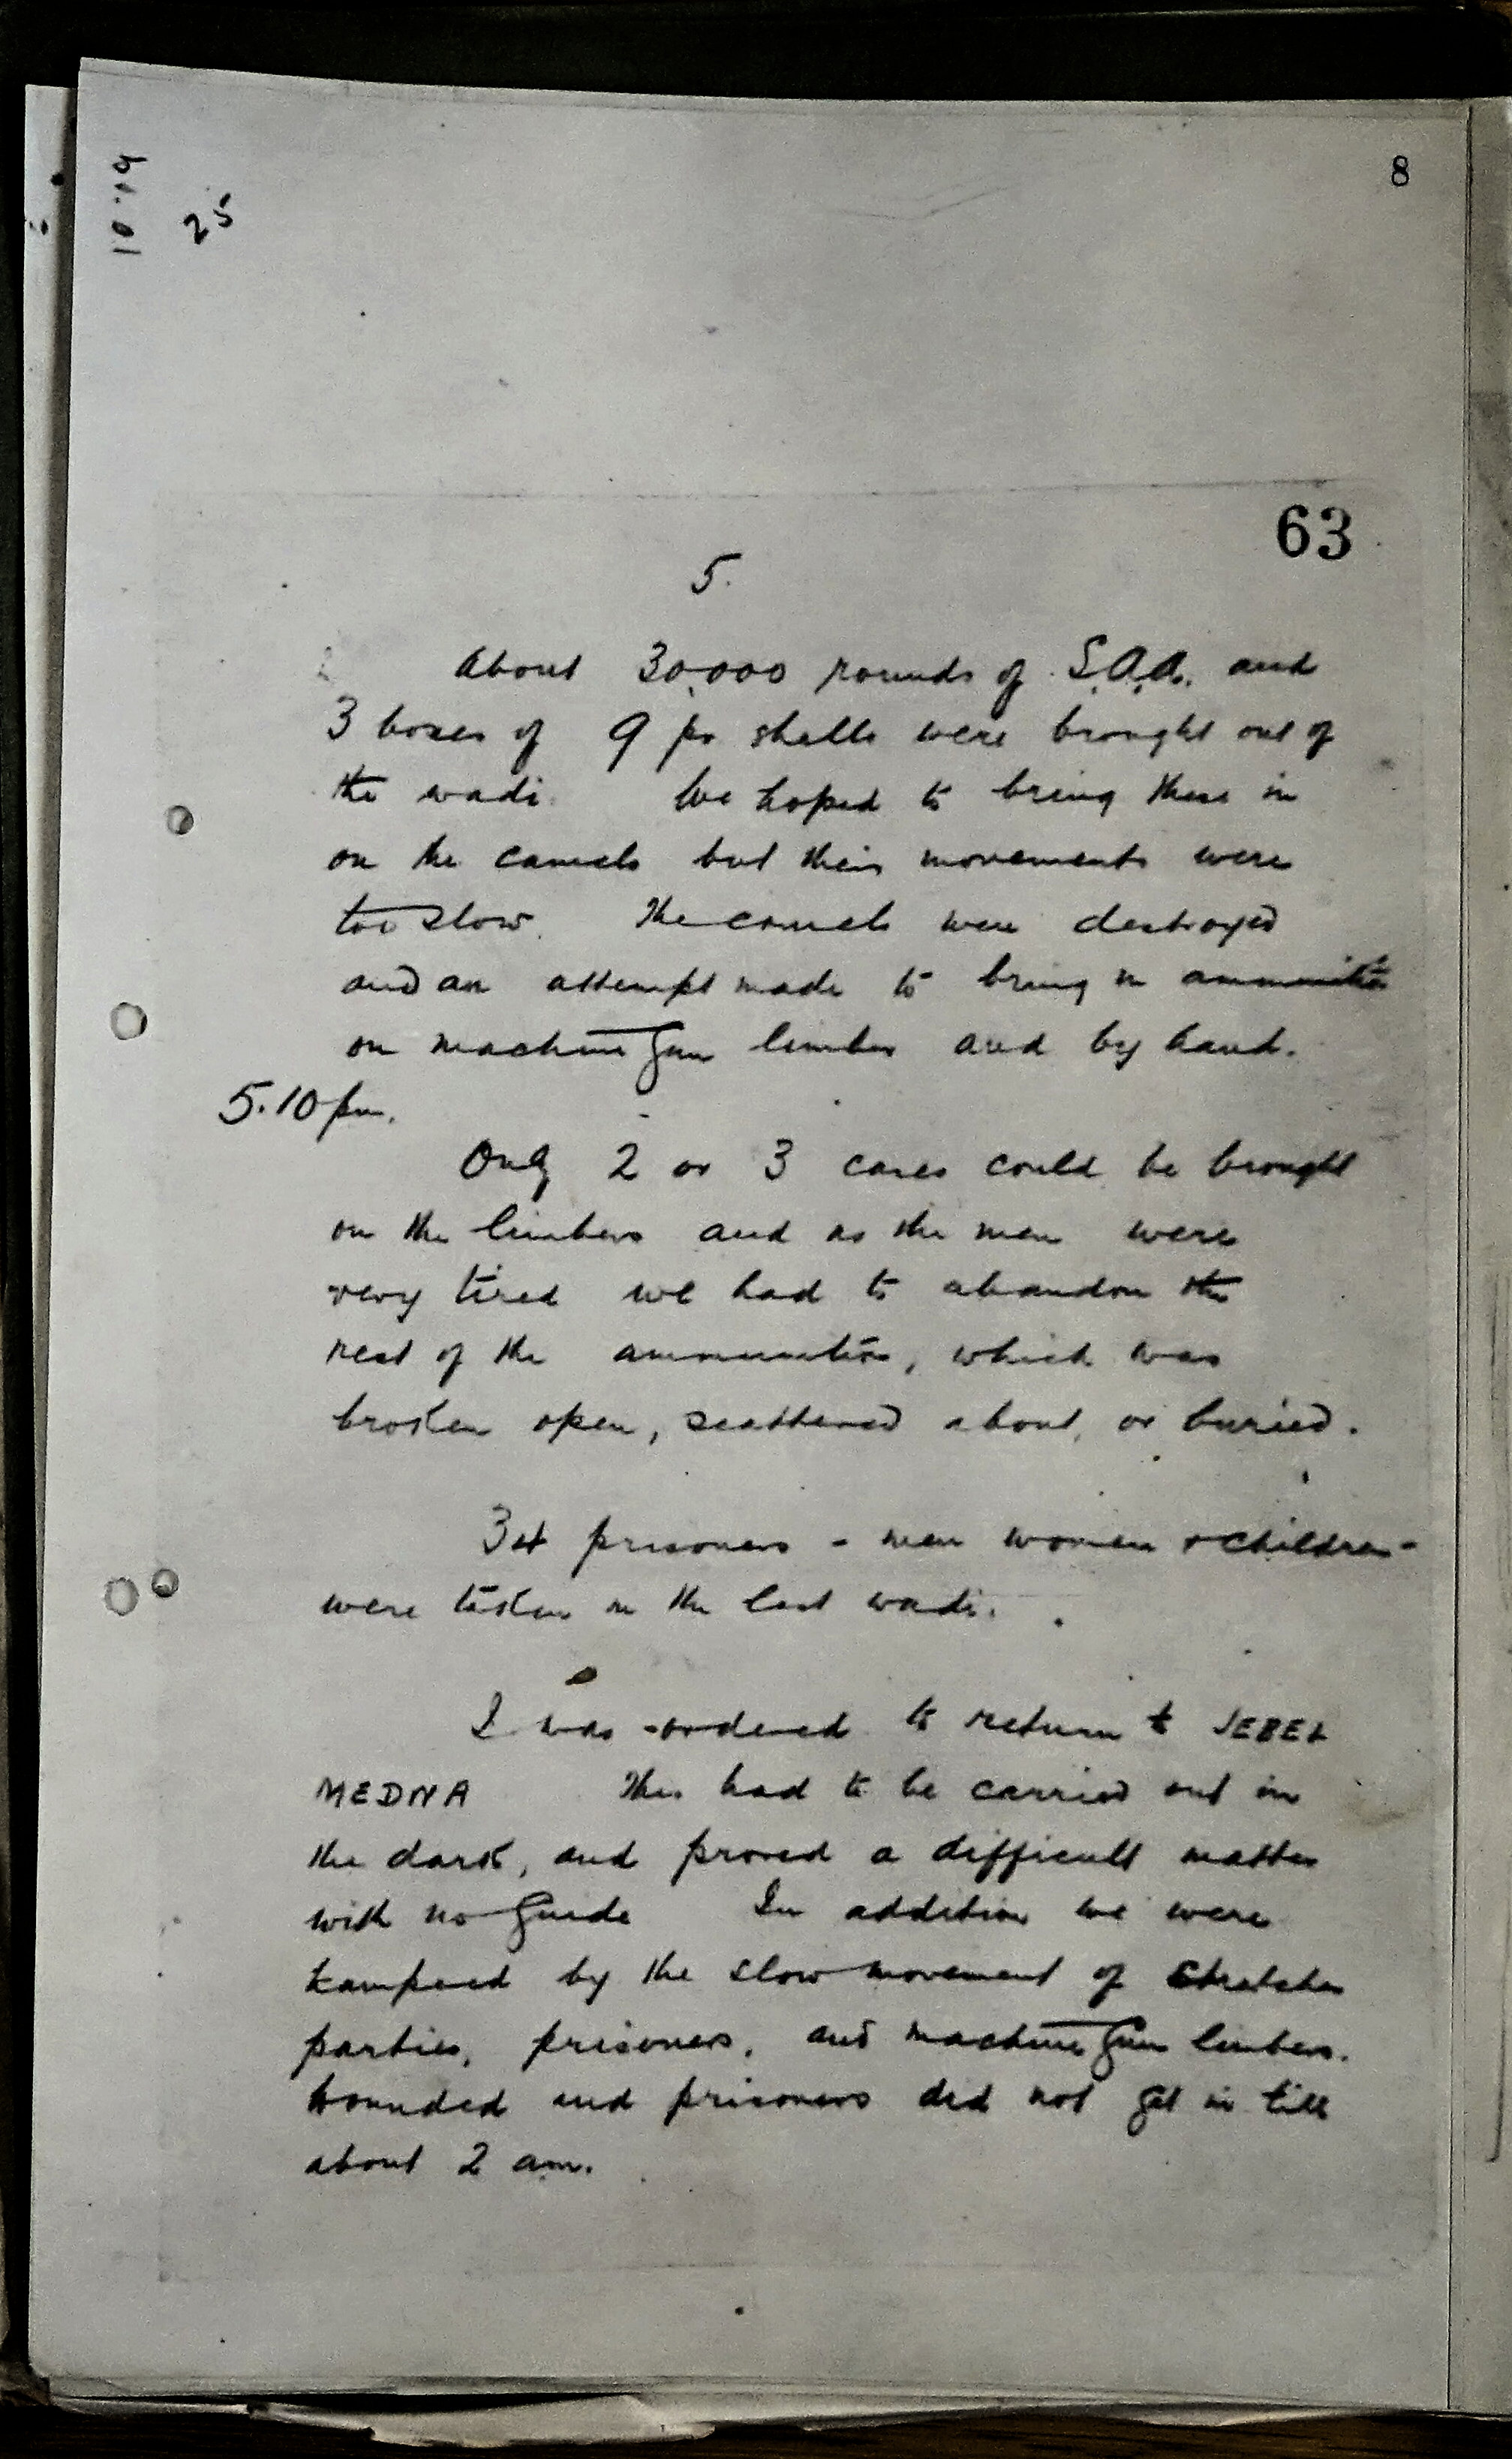 8
10.19
25
63
5.
About 30,000 rounds of S.A.A. and
3 boxes of 9 pr shells were brought out of
the wadi. We hoped to bring these in
on the camels but their movements were
too slow. The camels were destroyed
and an attempt made to bring in ammunition
on machine gun limber and by hand.
5.10 pm.
Only 2 or 3 cases could be brought
on the limbers and as the men were
very tired we had to abandon the
rest of the ammunition, which was
broken open, scattered about, or buried.
34 prisoners - men women + children -
were taken in the last wadi.
I was ordered to return to JEBEL
MEDWA This had to be carried out in
the dark, and proved a difficult matter
with no guide In addition we were
hampered by the slow movement of stretcher
parties, prisoners, and machine gun limbers.
Wounded and prisoners did not get in till
about 2 am.